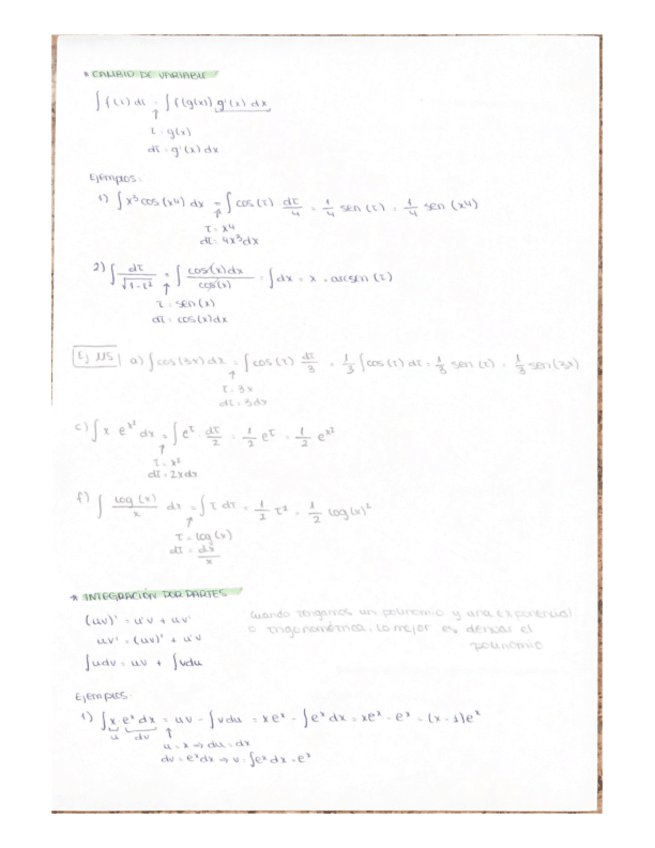 * CAMBIO DE VARIABLE
∫ f(τ) dτ = ∫ f(g(x)) g'(x) dx
↑
τ = g(x)
dτ = g'(x) dx
Ejemplos:
1) ∫ x³ cos(x⁴) dx = ∫ cos(τ) dτ/4 = 1/4 sen(τ) = 1/4 sen(x⁴)
↑
τ = x⁴
dτ = 4x³dx
2) ∫ dτ/√(1-τ²) = ∫ cos(x)dx/cos(x) = ∫ dx = x = arcsen(τ)
↑
τ = sen(x)
dτ = cos(x)dx
Ej 115 | a) ∫ cos(3x) dx = ∫ cos(τ) dτ/3 = 1/3 ∫ cos(τ) dτ = 1/3 sen(τ) = 1/3 sen(3x)
↑
τ = 3x
dτ = 3dx
c) ∫ x e^x² dx = ∫ e^τ · dτ/2 = 1/2 e^τ = 1/2 e^x²
↑
τ = x²
dτ = 2xdx
f) ∫ log(x)/x dx = ∫ τ dτ = 1/2 τ² = 1/2 log(x)²
↑
τ = log(x)
dτ = dx/x
* INTEGRACIÓN POR PARTES
(uv)' = u'v + uv'
uv' = (uv)' + u'v
∫udv = uv + ∫vdu
Cuando tengamos un polinomio y una exponencial
o trigonométrica, lo mejor es derivar el
polinomio
Ejemplos:
1) ∫ x·e^x dx = uv - ∫vdu = xe^x - ∫e^x dx = xe^x - e^x = (x-1)e^x
u dv ↑
u = x ⇒ du = dx
dv = e^x dx ⇒ v = ∫e^x dx = e^x